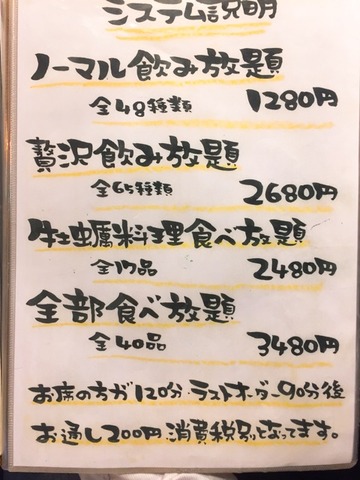 システム説明
ノーマル飲み放題
全48種類 1280円
贅沢飲み放題
全65種類 2680円
牡蠣料理食べ放題
全17品 2480円
全部食べ放題
全40品 3480円
お席の方が120分 ラストオーダー90分後
お通し200円 消費税別となってます。